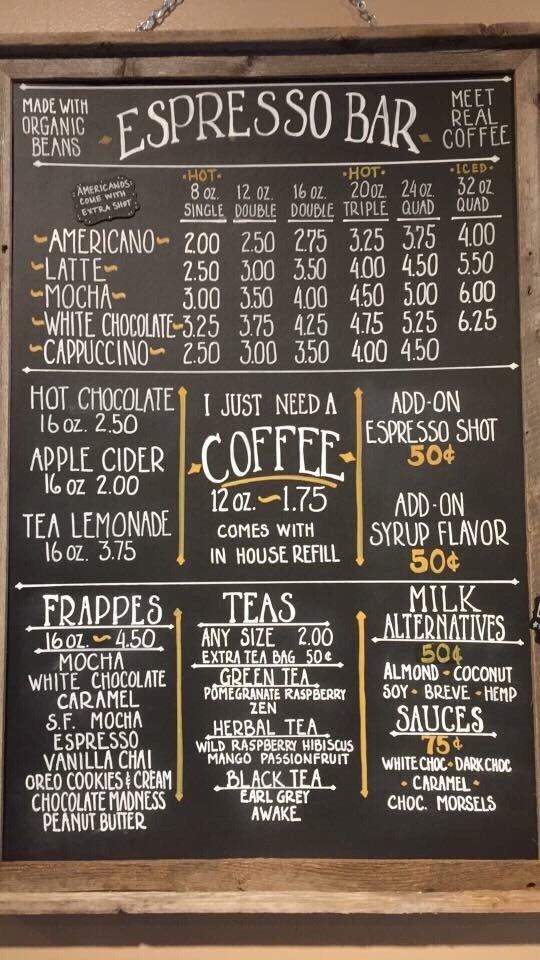 MADE WITH
ORGANIC
BEANS
ESPRESSO BAR
MEET
REAL
COFFEE
AMERICANOS
COME WITH
EXTRA SHOT
·HOT· ·HOT· ·ICED·
8 OZ. 12 OZ. 16 OZ. 20 OZ. 24 OZ. 32 OZ
SINGLE DOUBLE DOUBLE TRIPLE QUAD QUAD
~AMERICANO~ 2.00 2.50 2.75 3.25 3.75 4.00
~LATTE~ 2.50 3.00 3.50 4.00 4.50 5.50
~MOCHA~ 3.00 3.50 4.00 4.50 5.00 6.00
~WHITE CHOCOLATE~ 3.25 3.75 4.25 4.75 5.25 6.25
~CAPPUCCINO~ 2.50 3.00 3.50 4.00 4.50
HOT CHOCOLATE
16 OZ. 2.50
APPLE CIDER
16 OZ 2.00
TEA LEMONADE
16 OZ. 3.75
I JUST NEED A
COFFEE
12 OZ.~1.75
COMES WITH
IN HOUSE REFILL
ADD-ON
ESPRESSO SHOT
50¢
ADD-ON
SYRUP FLAVOR
50¢
FRAPPES
16 OZ. ~ 4.50
MOCHA
WHITE CHOCOLATE
CARAMEL
S.F. MOCHA
ESPRESSO
VANILLA CHAI
OREO COOKIES & CREAM
CHOCOLATE MADNESS
PEANUT BUTTER
TEAS
ANY SIZE 2.00
EXTRA TEA BAG 50¢
GREEN TEA
POMEGRANATE RASPBERRY
ZEN
HERBAL TEA
WILD RASPBERRY HIBISCUS
MANGO PASSIONFRUIT
BLACK TEA
EARL GREY
AWAKE
MILK
ALTERNATIVES
50¢
ALMOND · COCONUT
SOY · BREVE · HEMP
SAUCES
75¢
WHITE CHOC · DARK CHOC
· CARAMEL ·
CHOC. MORSELS